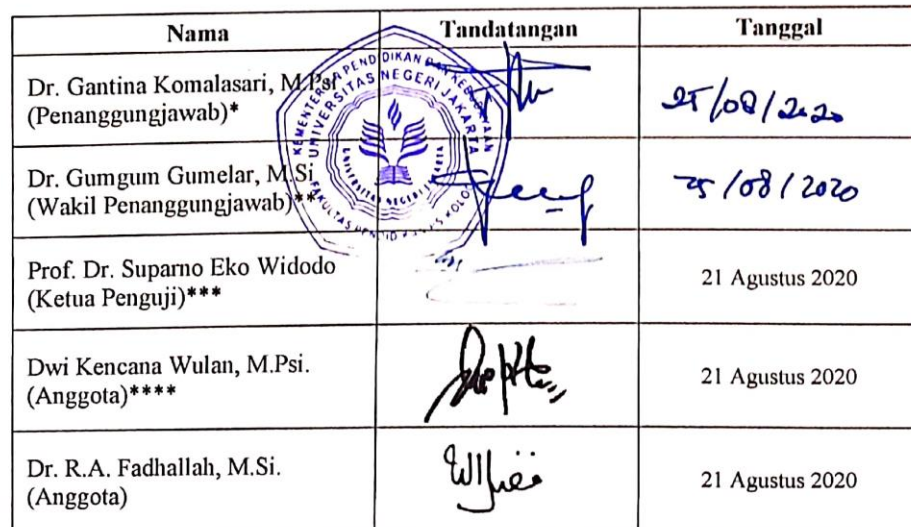 Nama Tandatangan Tanggal
Dr. Gantina Komalasari, M.Psi
(Penanggungjawab)*
25/08/2020
Dr. Gumgum Gumelar, M.Si
(Wakil Penanggungjawab)**
25/08/2020
Prof. Dr. Suparno Eko Widodo
(Ketua Penguji)***
21 Agustus 2020
Dwi Kencana Wulan, M.Psi.
(Anggota)****
21 Agustus 2020
Dr. R.A. Fadhallah, M.Si.
(Anggota)
21 Agustus 2020
KEMENTERIAN PENDIDIKAN DAN KEBUDAYAAN
UNIVERSITAS NEGERI JAKARTA
UNIVERSITAS NEGERI JAKARTA